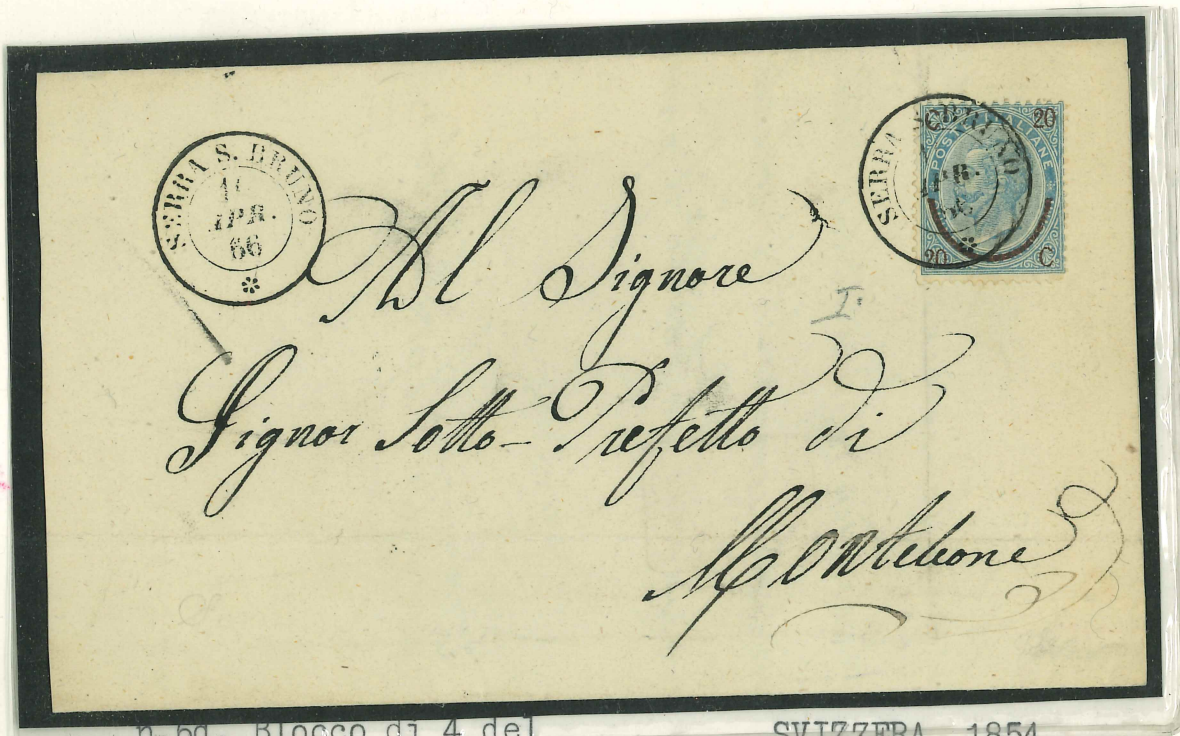 SERRA S. BRUNO
APR.
66
SERRA S. BRUNO
APR.
66
POSTE ITALIANE
20
20 C
I.
Al Signore
Signor Sotto-Prefetto di
Monteleone
n.6d. Blocco di 4 del
SVIZZERA 1854